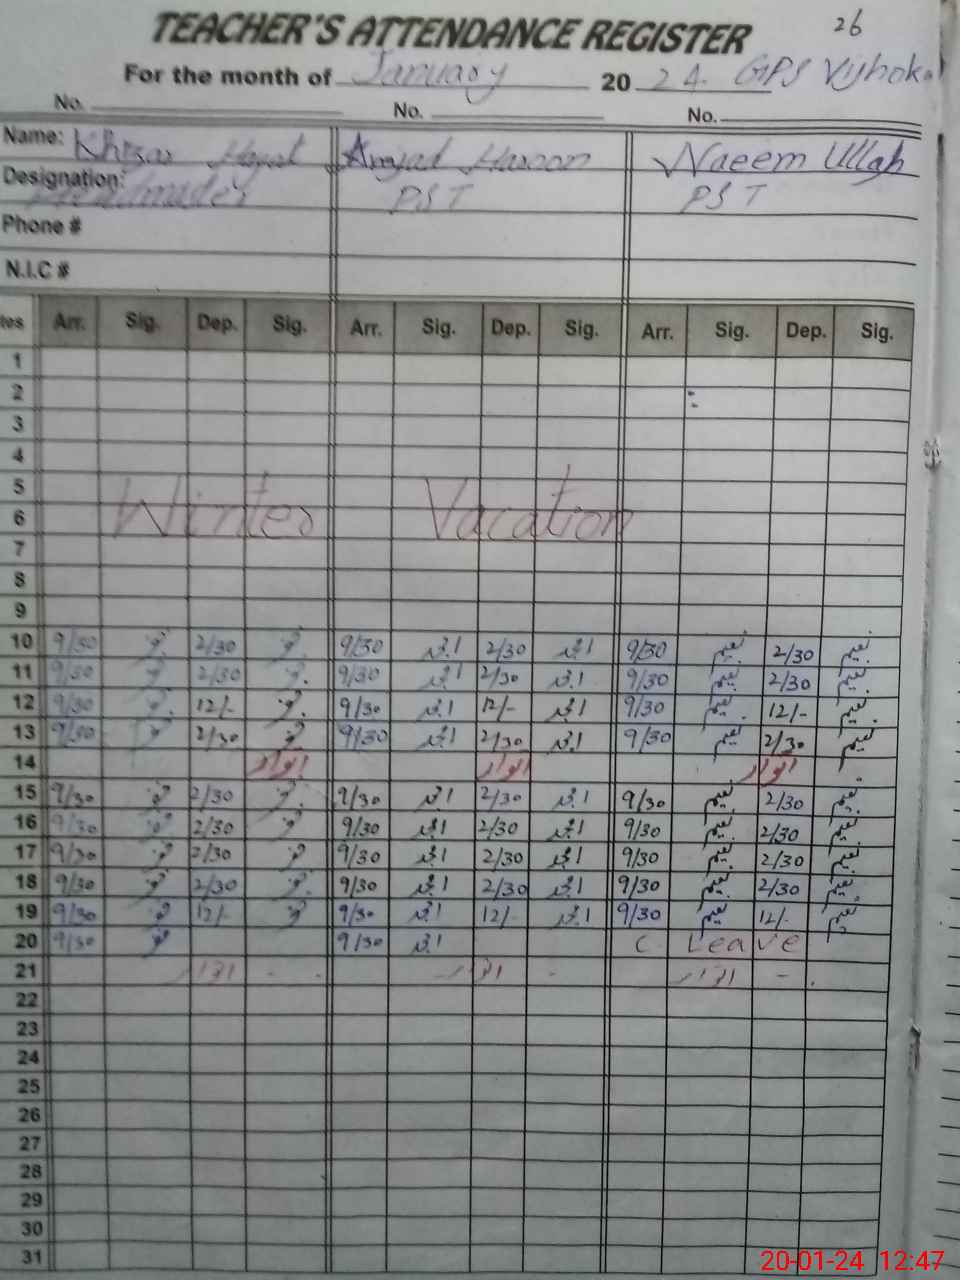 26
TEACHER'S ATTENDANCE REGISTER
For the month of January 20 24. GPS
No. No. No.
Name: Khizar Hayat Amjad Haroon Naeem Ullah
Designation: Headmaster PST PST
Phone #
N.I.C #
tes Arr. Sig. Dep. Sig. Arr. Sig. Dep. Sig. Arr. Sig. Dep. Sig.
1
2
3
4
5
6 Winter Vacation
7
8
9
10 9/30 2/30 9/30 2/30 9/30 نعیم 2/30 نعیم
11 9/30 2/30 9/30 2/30 9/30 نعیم 2/30 نعیم
12 9/30 12/- 9/30 12/- 9/30 نعیم 12/- نعیم
13 9/30 2/30 9/30 2/30 9/30 نعیم 2/30 نعیم
14 اتوار اتوار اتوار
15 9/30 2/30 9/30 2/30 9/30 نعیم 2/30 نعیم
16 9/30 2/30 9/30 2/30 9/30 نعیم 2/30 نعیم
17 9/30 2/30 9/30 2/30 9/30 نعیم 2/30 نعیم
18 9/30 2/30 9/30 2/30 9/30 نعیم 2/30 نعیم
19 9/30 12/- 9/30 12/- 9/30 نعیم 12/- نعیم
20 9/30 9/30 C Leave
21 اتوار - اتوار - اتوار -
22
23
24
25
26
27
28
29
30
31
20-01-24 12:47